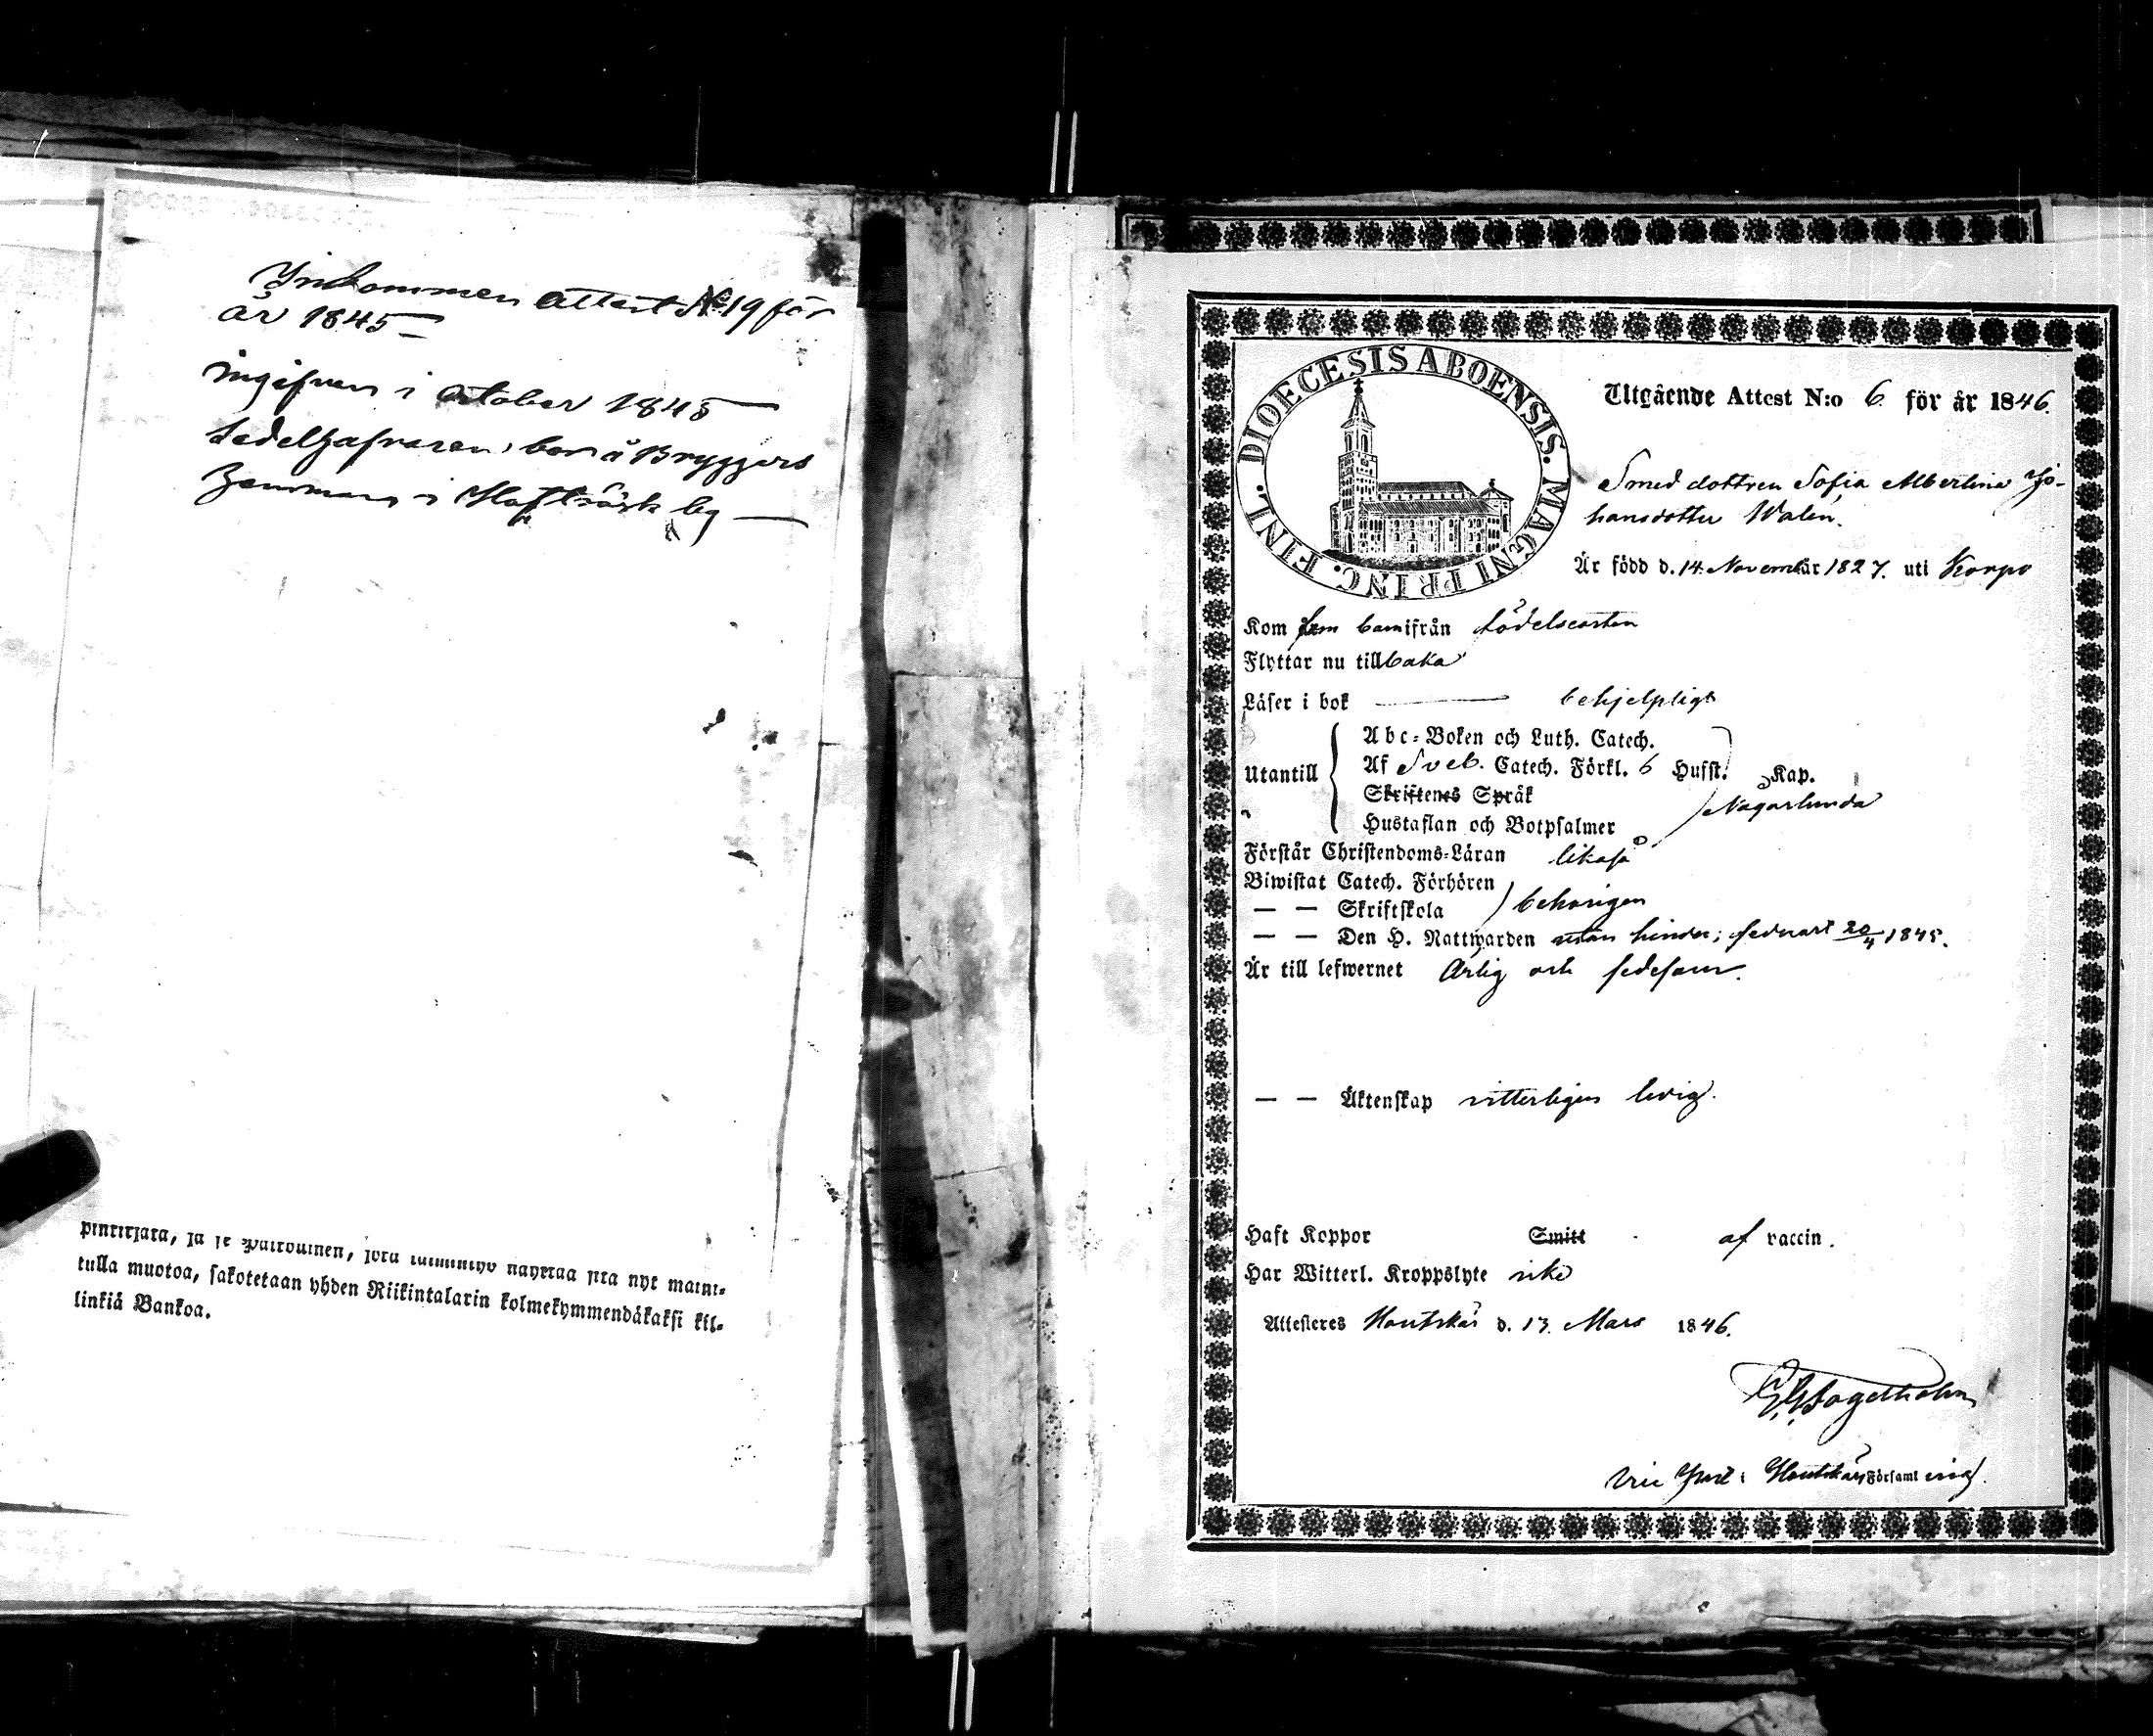 Inkommen Attest No 19 för
år 1845
ingifven i october 1845
Sedelhafvaren, bor å Bryggars
hemman i by
pintkirjata, ja je
tulla muotoa, sakotetaan yhden Riikintalarin kolmekymmendäkaksi kil-
linkiä Bankoa.
DIOECESIS ABOENSIS. MAGNI PRINC. FINL.
Utgående Attest N:o 6. för år 1846.
Smed dottren Sofia Albertina Jo-
hansdotter Walen.
Är född d. 14. November år 1827. uti Korpo
Kom som barn ifrån födelseorten
Flyttar nu tillbaka
Läser i bok behjelpligt
Utantill
Abc-Boken och Luth. Catech.
Af Sveb. Catech. Förkl. 6 Hufst. Kap.
Skriftenes Språk
Någorlunda
Hustaflan och Botpsalmer
Förstår Christendoms-Läran likaså
Biwistat Catech. Förhören
— — Skriftskola behörigen
— — Den H. Nattwarden utan hinder; sednast 20/4 1845.
Är till lefwernet Ärlig och sedesam.
— — Äktenskap vitterligen ledig.
Haft Koppor Smitt af vaccin.
Har Witterl. Kroppslyte icke
Attesteres Houtskär d. 13. Mars 1846.
Vice Past. i Houtskärs Församling.